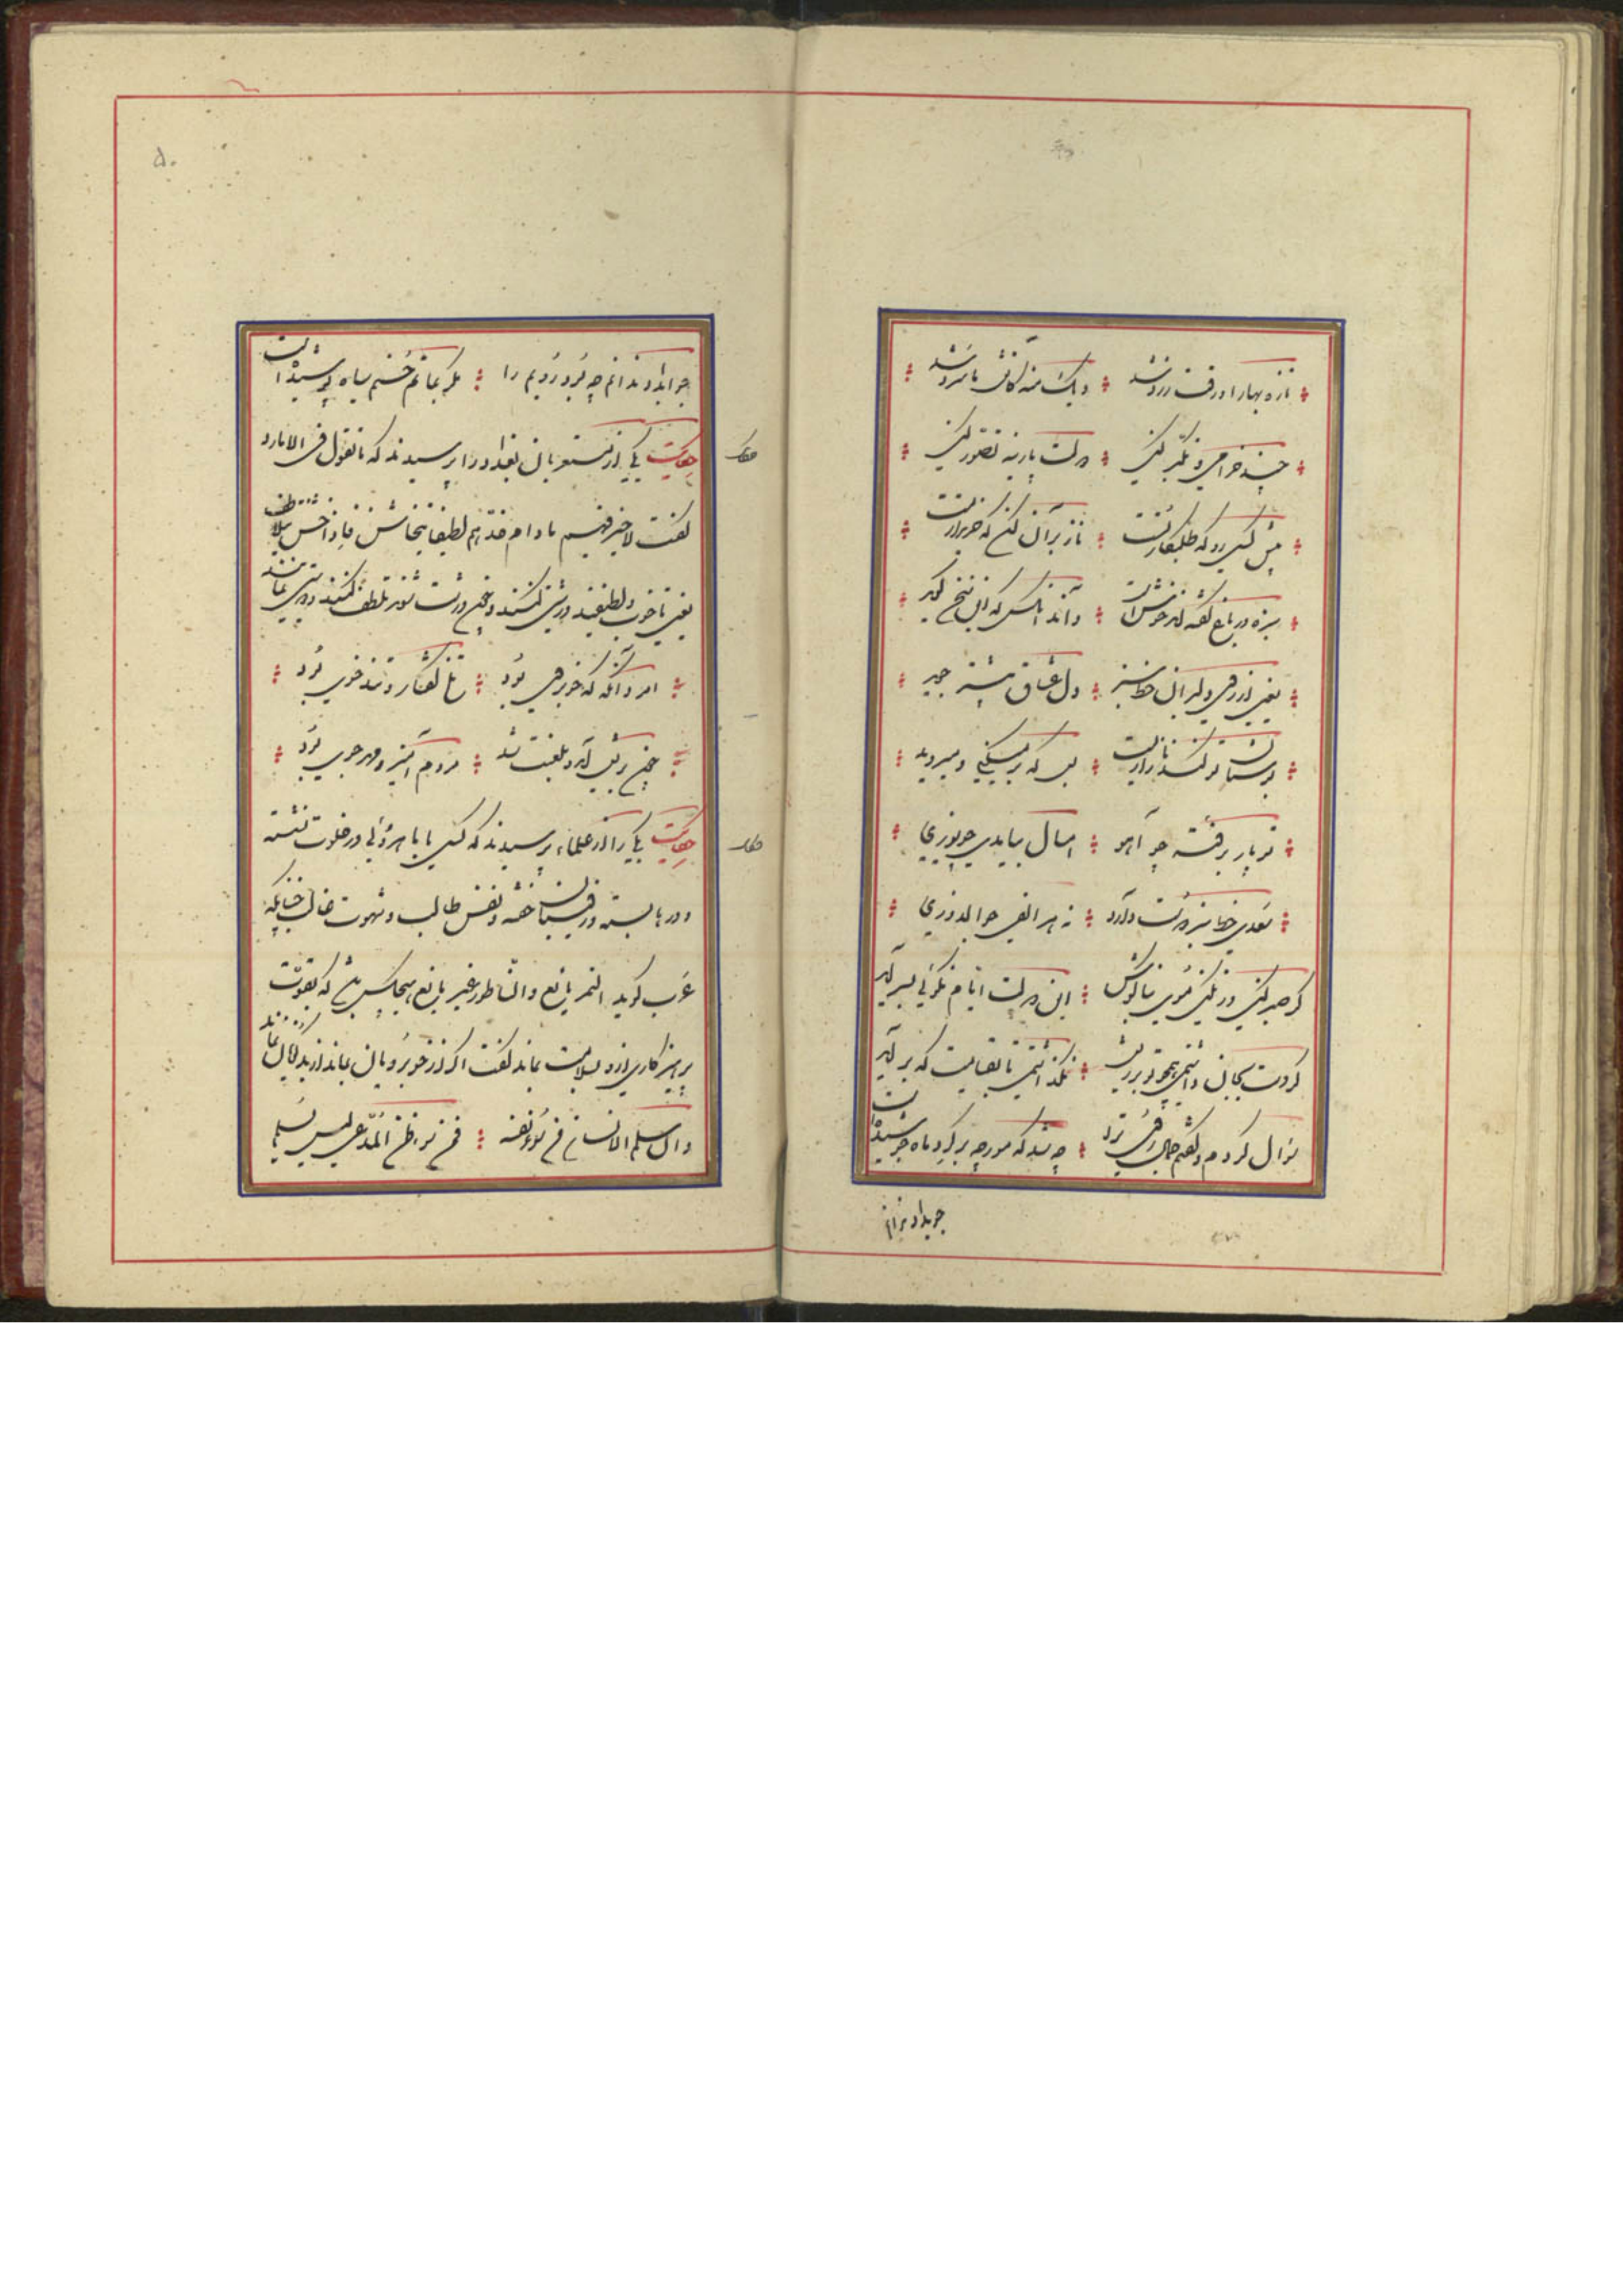 تازه بهارا ورقت زرد شد ؞ دیگ منه کاتش ما سرد شد
چند خرامی و تکبر کنی ؞ دولت پارینه تصور کنی
پیش کسی رو که طلبکار تست ؞ ناز بر آن کن که خریدار تست
سبزه در باغ گفته‌اند خوش است ؞ داند آنکس که این سخن گوید
یعنی از روی دلبران خط سبز ؞ دل عشاق بیشتر جوید
بوستان تو گندنازاریست ؞ بس که بر میکنی و میروید
تو پار برفتهٔ چو آهو ؞ امسال بیایدی چو یوزی
سعدی خط سبز دوست دارد ؞ نه هر الفی جوالدوزی
گر صبر کنی ور نکنی موی بناگوش ؞ این دولت ایام نکوئی بسر آید
گر دست بجان داشتمی همچو تو بر ریش ؞ نگذاشتمی تا بقیامت که بر آید
سوال کردم و گفتم جمال روی ترا ؞ چه شد که مورچه بر گرد ماه جوشیدست
جوابداد ندانم
۵۰
جوابداد ندانم چه بود رویم را ؞ مگر بماتم حسنم سیاه پوشیدست
حکایت یکی از مستعربان بغداد را پرسیدند که ما تقول فی الامارد
گفت لا خیر فیهم ما دام احدهم لطیفا یتخاشن فاذا خشن یتلاطف
یعنی تا خوب و لطیفند درشتی کنند و چون درشت شوند تلطف کنند و درشتی نمانند
امرد آنگه که خوبروی بود ؞ تلخ گفتار و تندخوی بود
چون بریش آمد و بلعنت شد ؞ مردم آمیز و مهرجوی بود
حکایت یکی را از علماء پرسیدند که کسی با ماهروئی در خلوت نشسته
و درها بسته و رقیبان خفته و نفس طالب و شهوت غالب چنانکه
عرب گوید التمر یانع و الناطور غیر مانع هیچکس باشد که بقوت
پرهیزکاری ازو بسلامت بماند گفت اگر از خوبرویان بماند از بدگویان نماند
و ان سلم الانسان من سوء نفسه ؞ فمن سوء ظن المدعی لیس یسلم